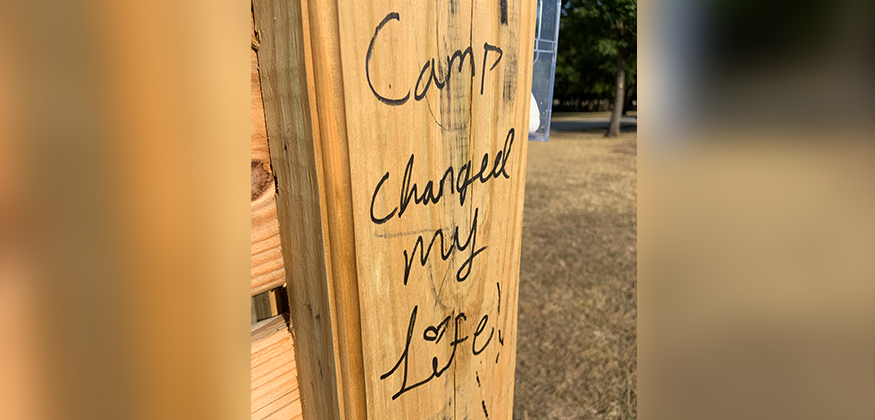 Camp
Changed
My
Life!